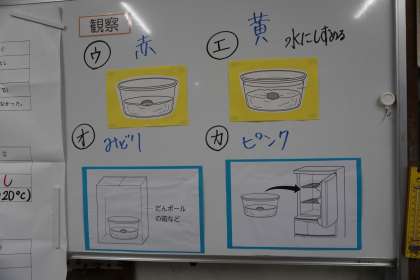 観察
ウ 赤
エ 黄 水にしずめる
オ みどり
カ ピンク
だんボール
の箱など
かった。
し
20℃)